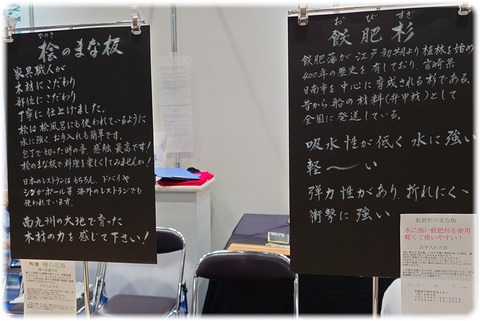 ひのき
桧のまな板
家具職人が
木材にこだわり
部位にこだわり
丁寧に仕上げました。
桧は桧風呂にも使われているように
水に強く、お手入れも簡単です。
包丁で切った時の音、感触、最高です!
桧のまな板で料理を楽しくしてみませんか!
日本のレストランはもちろん、ドバイや
シンガポール等 海外のレストランでも
使われています。
南九州の大地で育った
木材の力を感じて下さい!
おびすぎ
飫肥杉
飫肥藩が江戸初期より植林を始め
400年の歴史を有しており、宮崎県
日南市を中心に育成される杉である。
昔から船の材料(弁甲材)として
全国に発送している。
吸水性が低く水に強い
軽〜い
弾力性があり、折れにくい
衝撃に強い
飫肥杉のまな板
水に強い飫肥杉を使用
軽くて使いやすい!
お手入れ方法